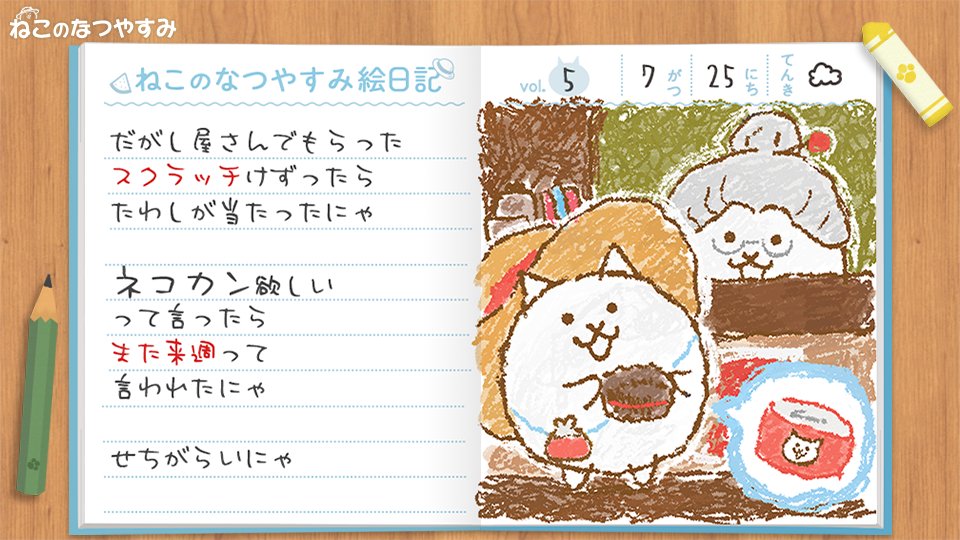 ねこのなつやすみ
ねこのなつやすみ絵日記
vol. 5 7 がつ 25 にち てんき
だがし屋さんでもらった
スクラッチけずったら
たわしが当たったにゃ
ネコカン欲しい
って言ったら
また来週って
言われたにゃ
せちがらいにゃ